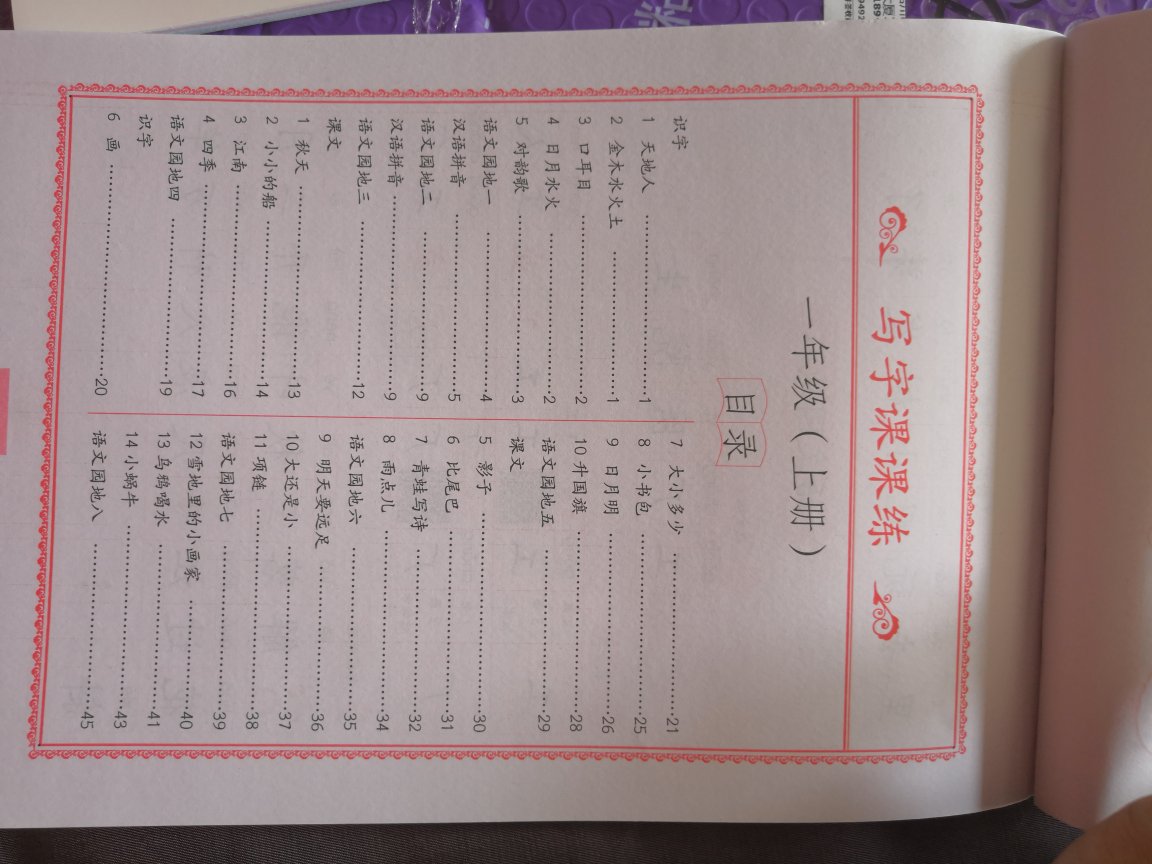 写字课课练
一年级（上册）
目录
识字
1 天地人 ……1
2 金木水火土 ……1
3 口耳目 ……2
4 日月水火 ……2
5 对韵歌 ……3
语文园地一 ……4
汉语拼音 ……5
语文园地二 ……9
汉语拼音 ……9
语文园地三 ……12
课文
1 秋天 ……13
2 小小的船 ……14
3 江南 ……16
4 四季 ……17
语文园地四 ……19
识字
6 画 ……20
7 大小多少 ……21
8 小书包 ……25
9 日月明 ……26
10 升国旗 ……28
语文园地五 ……29
课文
5 影子 ……30
6 比尾巴 ……31
7 青蛙写诗 ……32
8 雨点儿 ……34
语文园地六 ……35
9 明天要远足 ……36
10 大还是小 ……37
11 项链 ……38
语文园地七 ……39
12 雪地里的小画家 ……40
13 乌鸦喝水 ……41
14 小蜗牛 ……43
语文园地八 ……45